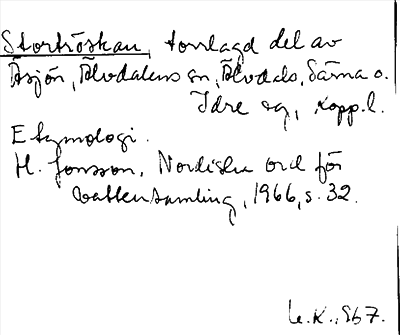 Stortröskan, torrlagd del av
Åsjön, Älvdalens sn, Älvdals, Särna o.
Idre sg, Kopp. l.
Etymologi.
H. Jonsson, Nordiska ord för
vattensamling, 1966, s. 32.
L.K., 967.